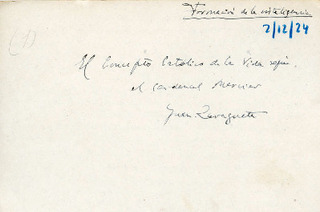 Formación de la inteligencia
2/12/24
(1)
El Concepto Católico de la Vida según
el Cardenal Mercier
Juan Zaragüeta